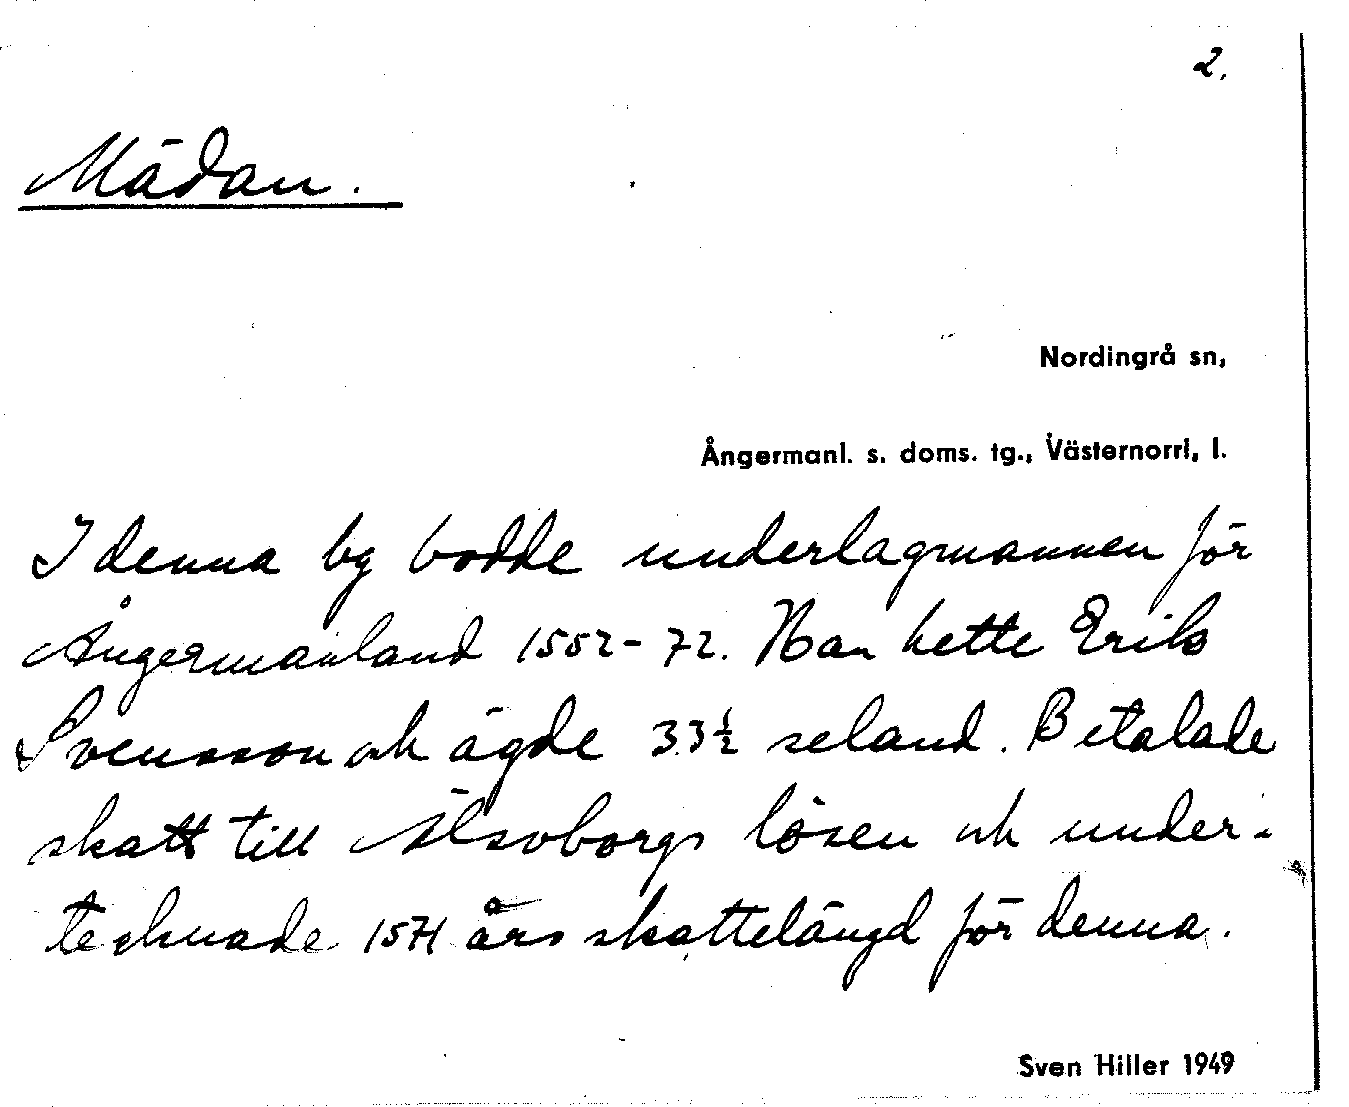 2.
Mädan.
Nordingrå sn,
Ångermanl. s. doms. tg., Västernorrl, l.
I denna by bodde underlagmannen för
Ångermanland 1552-72. Han hette Erik
Svensson och ägde 33½ seland. Betalade
skatt till Älsvborgs lösen och under-
tecknade 1571 års skattelängd för denna.
Sven Hiller 1949